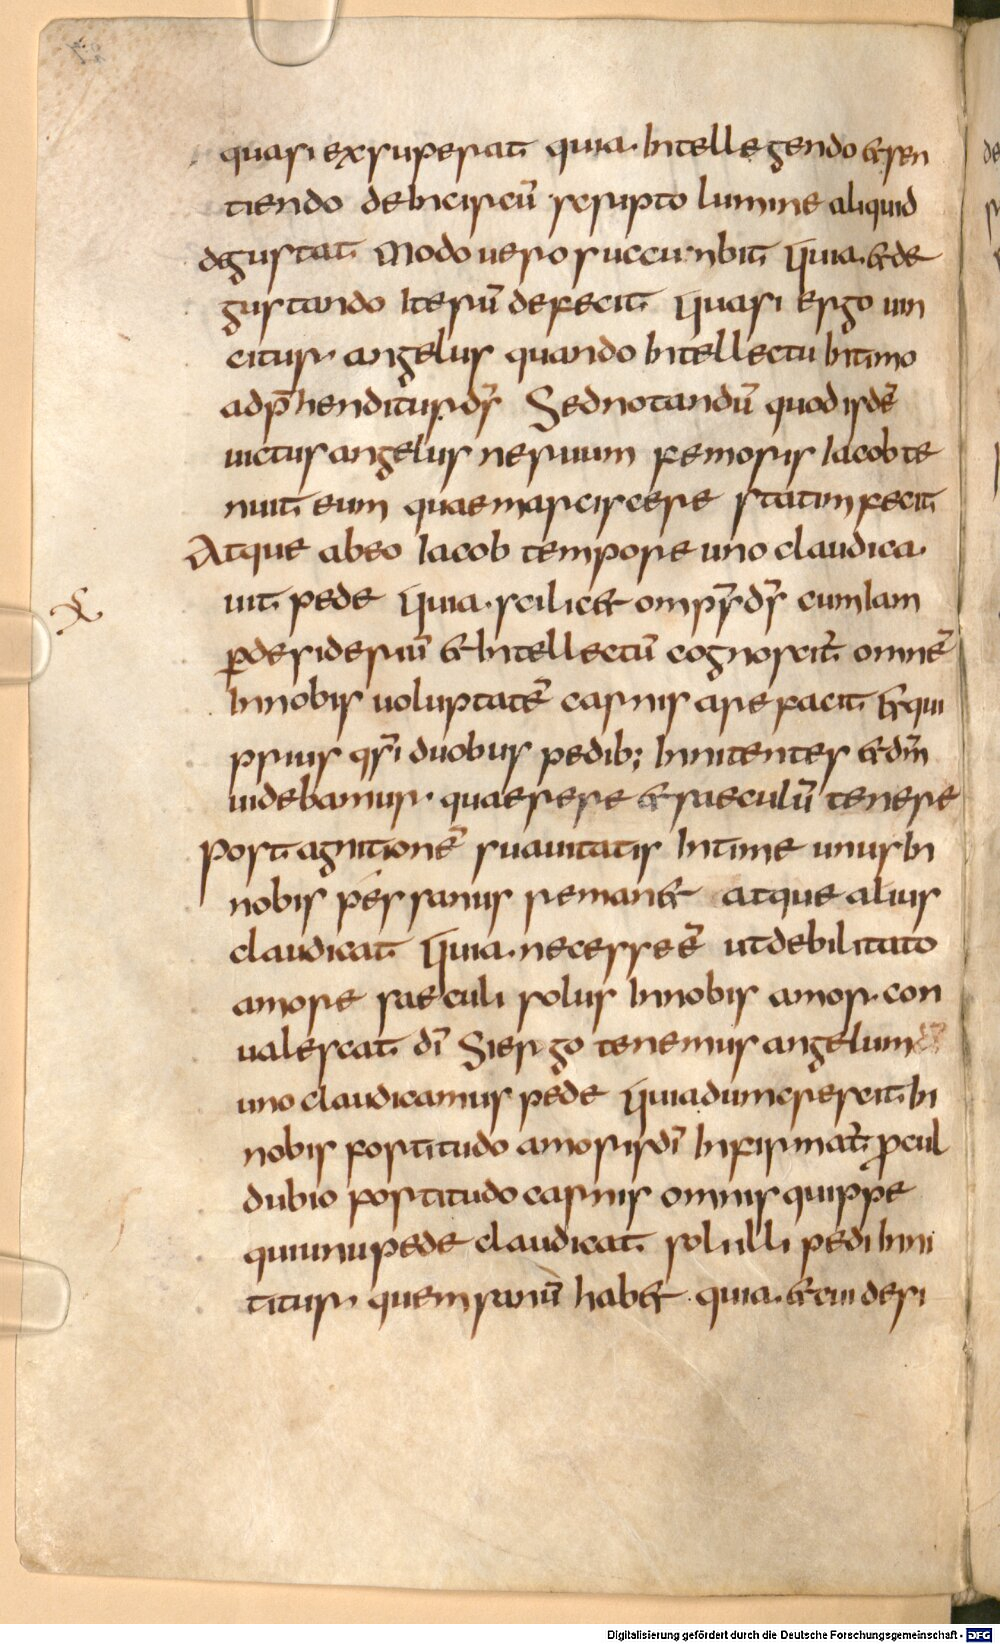 quasi exsuperat quia intellegendo & sen
tiendo de incircū scripto lumine aliquid
degustat Modo uero succumbit Quia & de
gustando iterū defecit Quasi ergo uin
citur angelus quando intellectu intimo
adp̄henditur dr̄ Sed notandū quod isdē
uictus angelus neruum femoris Iacob te
nuit eum quae marciscere statim fecit
Atque ab eo Iacob tempore uno claudica
uit pede Quia scilic& omp̄s dr̄ cum iam
ꝑ desideriū & intellectū cognoscit̄ omnē
in nobis uoluptatē carnis arefacit & qui
prius qr̄i duobus pedib; innitentes & dm̄
uidebamur quaerere & saeculū tenere
Post agnitionē suauitatis intime unus in
nobis pes sanus reman& atque alius
claudicat Quia necesse ē ut debilitato
amore saeculi solus in nobis amor con
ualescat dī Si ergo tenemus angelum
uno claudicamus pede Quia dum crescit in
nobis fortitudo amoris dī infirmat̄ procul
dubio fortitudo carnis omnis quippe
qui unu pede claudicat soli illi pedi inni
titur quem sanū hab& quia & cui desi
Digitalisierung gefördert durch die Deutsche Forschungsgemeinschaft - DFG